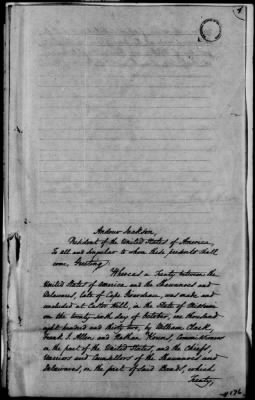 Andrew Jackson,
President of the United States of America,
To all and singular to whom these presents shall
come, Greeting:
Whereas a Treaty between the
United States of America and the Shawnoes and
Delawares, late of Cape Girardeau, was made and
concluded at Castor Hill, in the State of Missouri
on the twenty sixth day of October, one thousand
eight hundred and thirty two, by William Clark,
Frank J. Allen and Nathan Kouns, Commissioners
on the part of the United States, and the Chiefs,
Warriors and Counsellors of the Shawnoes and
Delawares, on the part of said Bands, which
Treaty,